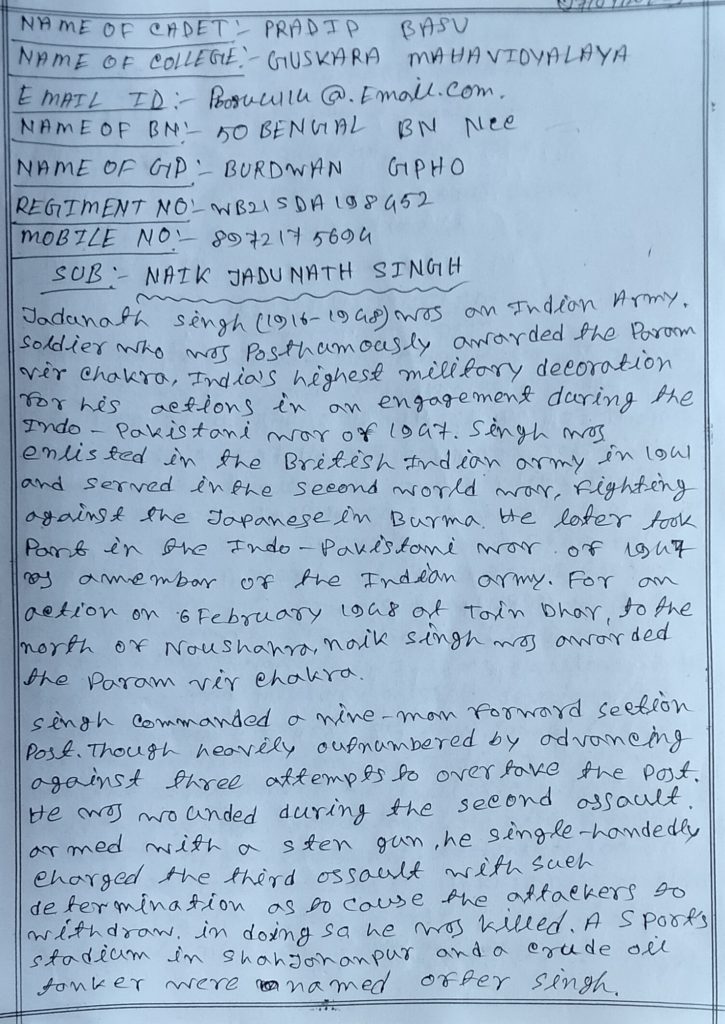 NAME OF CADET:- PRADIP BASU
NAME OF COLLEGE:- GUSKARA MAHAVIDYALAYA
EMAIL ID:- @.Email.com.
NAME OF BN:- 50 BENGAL BN Ncc
NAME OF GP:- BURDWAN GPHQ
REGIMENT NO:- WB21SDA198452
MOBILE NO:- 8972175694
SUB:- NAIK JADUNATH SINGH
Jadunath singh (1916-1948) was an Indian Army.
soldier who was Posthamously awarded the Param
vir chakra, India's highest military decoration
for his actions in an engagement during the
Indo-Pakistani war of 1947. Singh was
enlisted in the British Indian army in 1941
and served in the second world war, fighting
against the Japanese in Burma. He later took
Part in the Indo-Pakistani war of 1947
as a membar of the Indian army. For an
action on 6 February 1948 at Tain Dhar, to the
north of Noushahra, naik singh was awarded
the Param vir chakra.
singh commanded a nine-man forward section
Post. Though heavily outnumbered by advancing
against three attempts to overtake the Post.
He was wounded during the second assault.
armed with a sten gun, he single-handedly
charged the third assault with such
determination as to cause the attackers to
withdraw. in doing sa he was killed. A Sports
stadium in Shahjahanpur and a crude oil
tanker were named after singh.